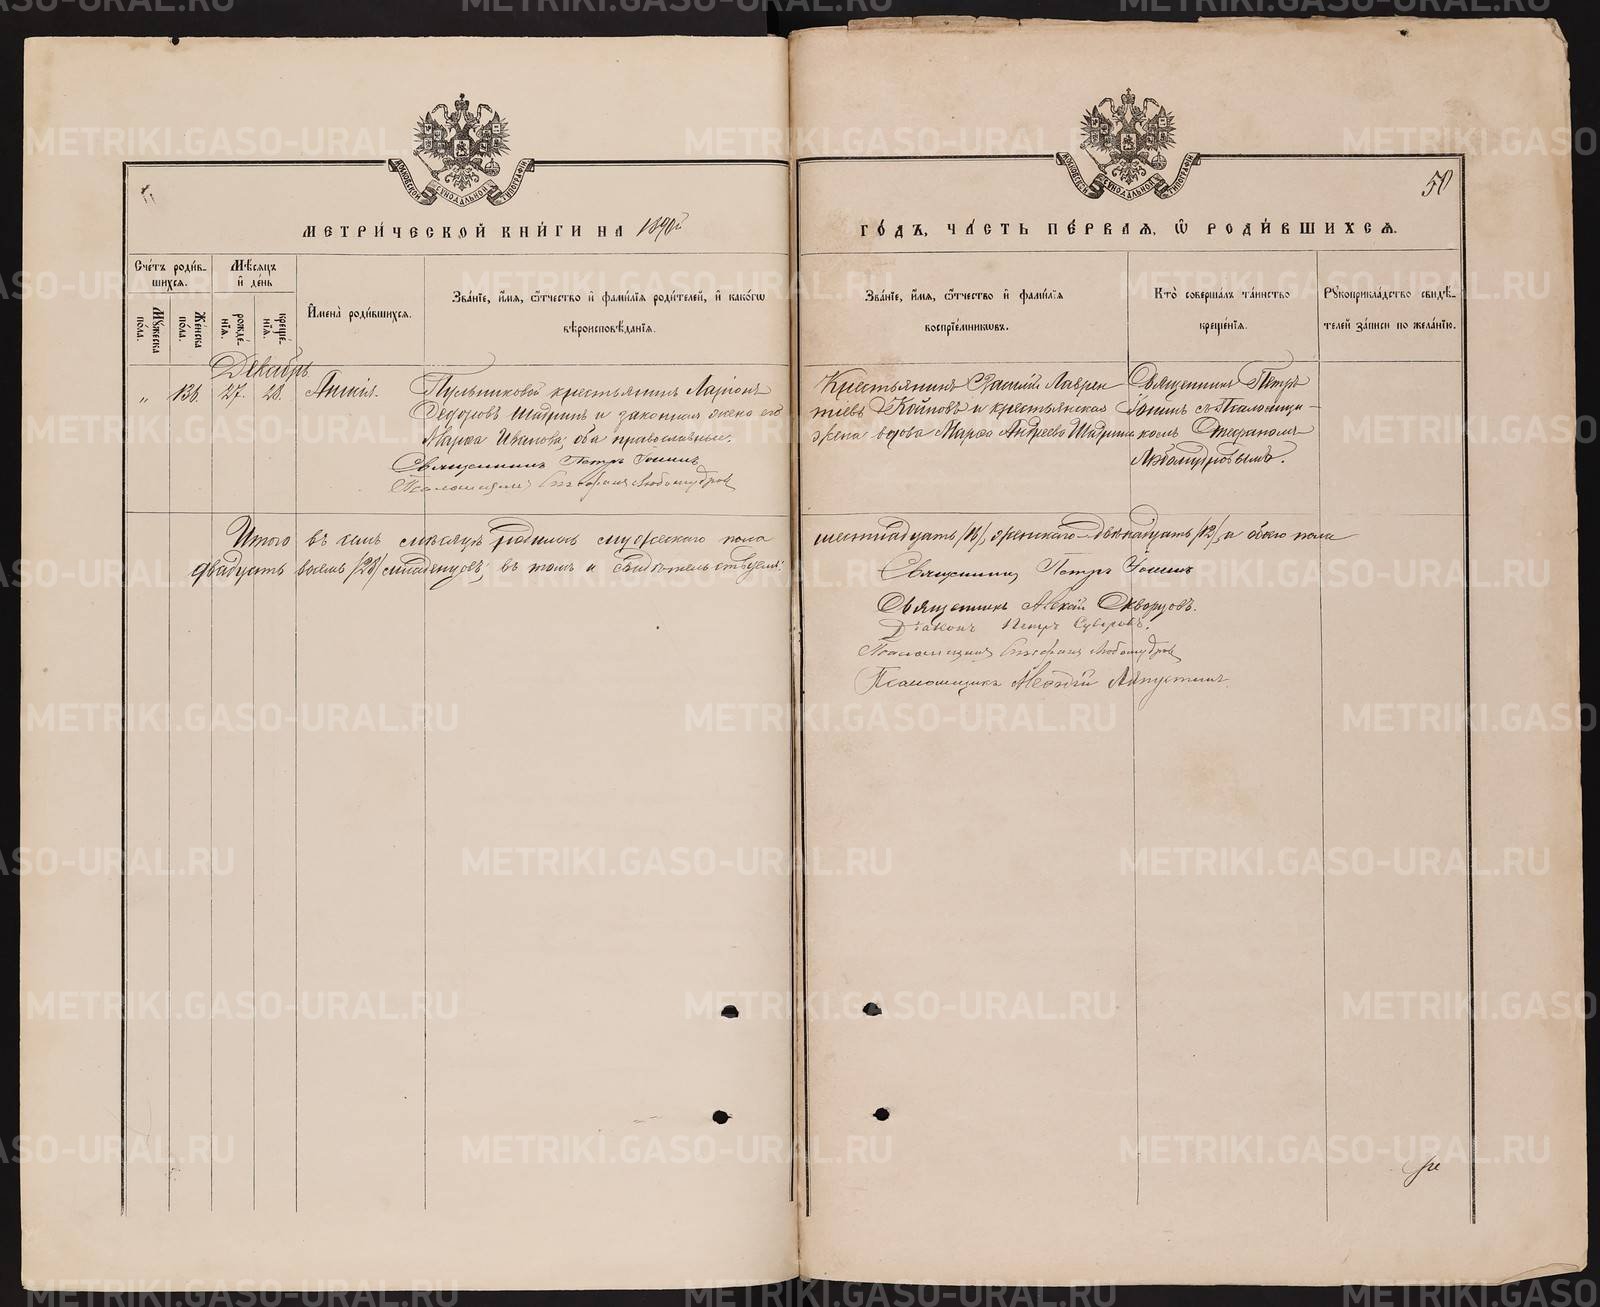 МОСКОВСКОЙ СѴНОДАЛЬНОЙ ТИПОГРАФІИ
МЕТРИ́ЧЕСКОЙ КНИ́ГИ НА 1890й
Сче́тъ роди́в-
шихся.
Мꙋ́жеска по́ла.
Же́нска по́ла.
Мѣ́сяцъ и де́нь
рожде́-
нїя.
креще́-
нїя.
И҆мена̀ роди́вшихся.
Зва́нїе, и҆́мя, ѻ҆́тчество и҆ фами́лїя роди́телей, и҆ како́гѡ
вѣроисповѣ́данїя.
Декабрь
„ 136. 27. 28. Анисія.
крестьянинъ Ларіонъ
Ѳедоровъ Шадринъ и законная жена его
Марѳа Иванова, оба православные.
Священникъ Петръ Іонинъ
Псаломщикъ Стефанъ Любомудровъ
Итого въ семъ мѣсяцѣ родилось мужескаго пола
двадцать восемь /28/ младенцовъ; въ томъ и свидѣтельствуемъ:
МОСКОВСКОЙ СѴНОДАЛЬНОЙ ТИПОГРАФІИ
50
ГО́ДЪ, ЧА́СТЬ ПЕ́РВАЯ, Ѡ҆ РОДИ́ВШИХСЯ.
Зва́нїе, и҆́мя, ѻ҆́тчество и҆ фами́лїя
воспрїе́мникѡвъ.
Кто̀ соверша́лъ та́инство
креще́нїя.
Рꙋкоприкла́дство свидѣ́-
телей за́писи по жела́нїю.
Крестьянинъ Василій Лаврен
тіевъ Койновъ и крестьянская
жена вдова Марѳа Андреева Шадрина
Священникъ Петръ
Іонинъ съ Псаломщи-
комъ Стефаномъ
Любомудровымъ.
шестнадцать /16/, женскаго двѣнадцать /12/, а обоего пола
Священникъ Петръ Іонинъ
Священникъ Алексій Скворцовъ.
Діаконъ Петръ Суворовъ.
Псаломщикъ Стефанъ Любомудровъ
Псаломщикъ
METRIKI.GASO-URAL.RU